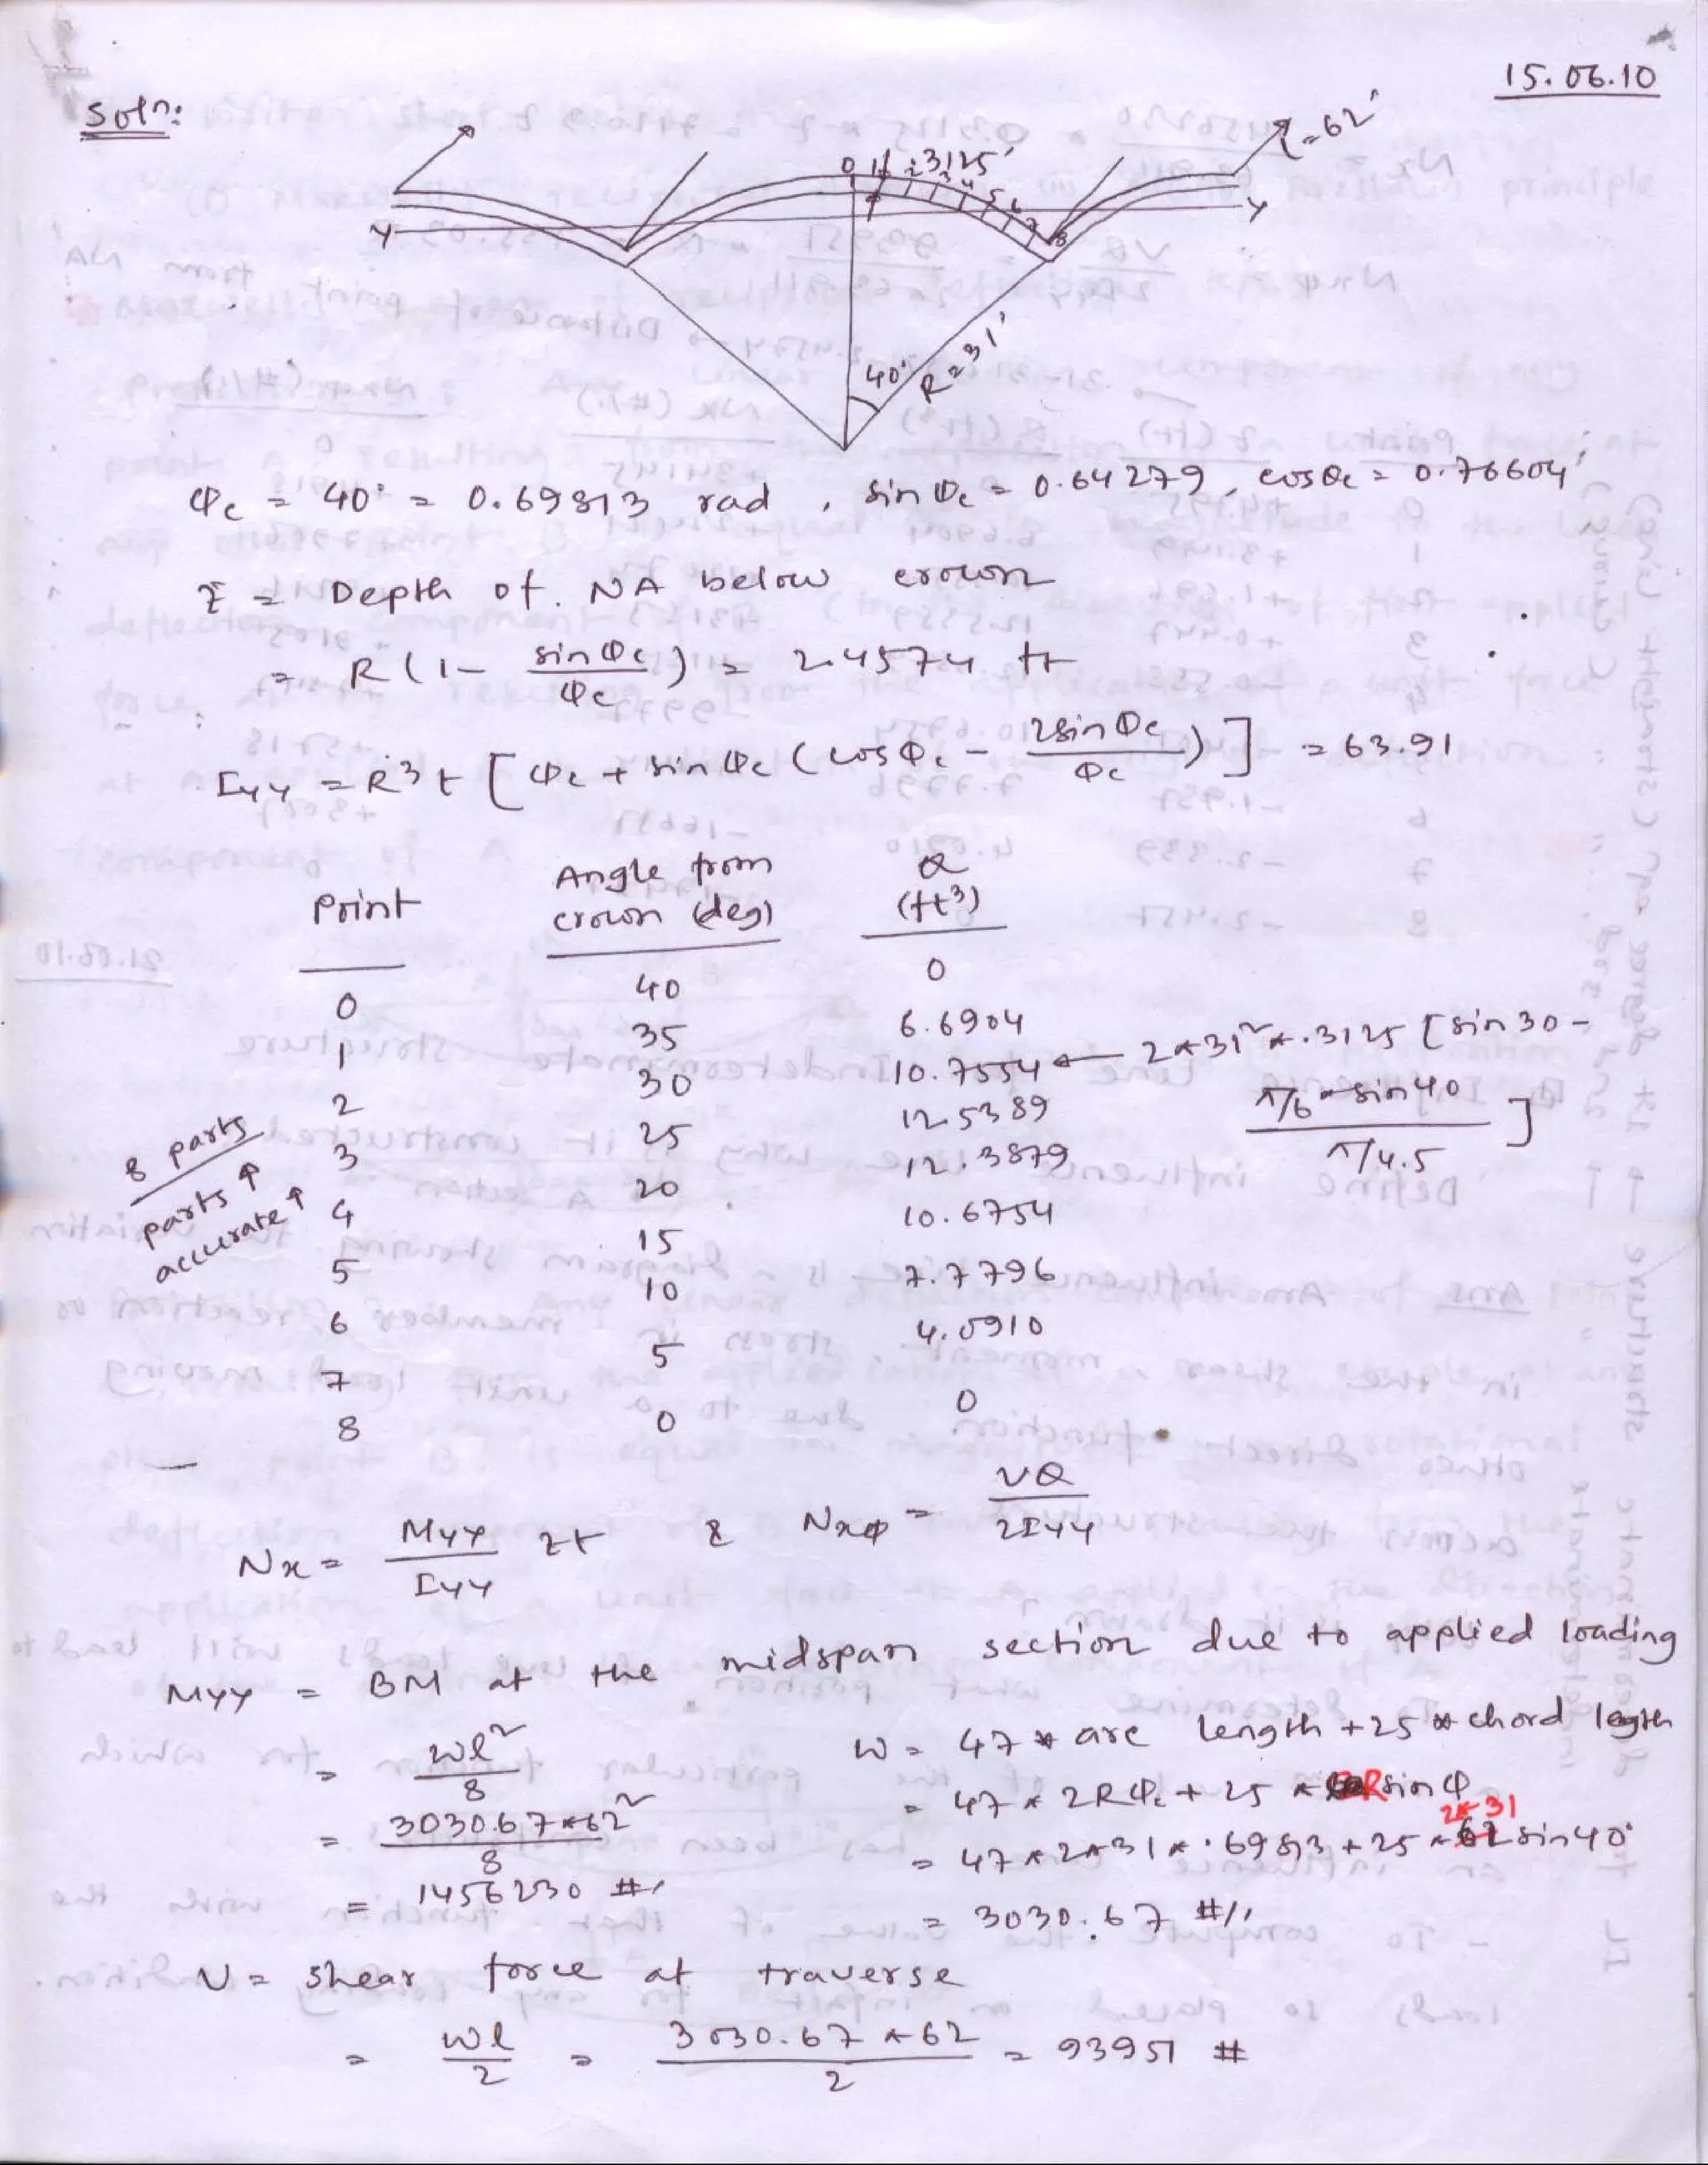 15.06.10
Soln:
l=62'
0 1 .3125'
2 3 4 5 6 7 8
Y Y
40° R=31'
φc = 40° = 0.69813 rad , sinφc = 0.64279, cosφc = 0.76604
z̄ = Depth of NA below crown
= R(1- sinφc/φc) = 2.4574 ft
Iyy = R³t [φc + sinφc (cosφc - 2sinφc/φc)] = 63.91
Point Angle from crown (deg) Q (ft³)
0 40 0
1 35 6.6904
2 30 10.7554 ← 2*31²*.3125 [sin30 - π/6*sin40 / π/4.5]
3 25 12.5389
4 20 12.3879
5 15 10.6754
6 10 7.7796
7 5 4.0910
8 0 0
8 parts
parts ↑
accurate ↑
Nx = Myy/Iyy zt & Nxφ = VQ/2Iyy
Myy = BM at the midspan section due to applied loading
= wl²/8
= 3030.67*62²/8
= 1456230 #'
W = 47 * arc length + 25 * chord legth
= 47 * 2Rφc + 25 * 2R sinφ
= 47*2*31*.69813 + 25*2*31 sin40°
= 3030.67 #/'
V = shear force at traverse
= wl/2 = 3030.67*62/2 = 93951 #